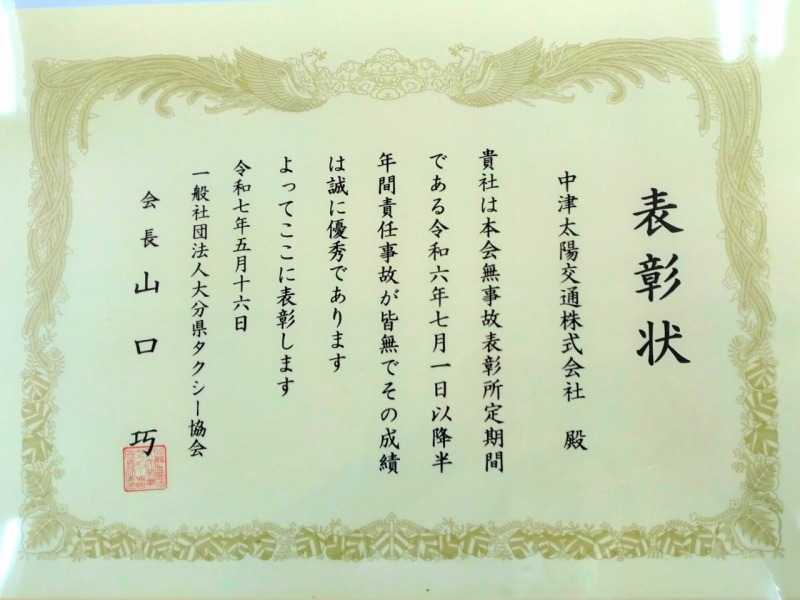 表彰状
中津太陽交通株式会社 殿
貴社は本会無事故表彰所定期間
である令和六年七月一日以降半
年間責任事故が皆無でその成績
は誠に優秀であります
よってここに表彰します
令和七年五月十六日
一般社団法人大分県タクシー協会
会長 山口 巧